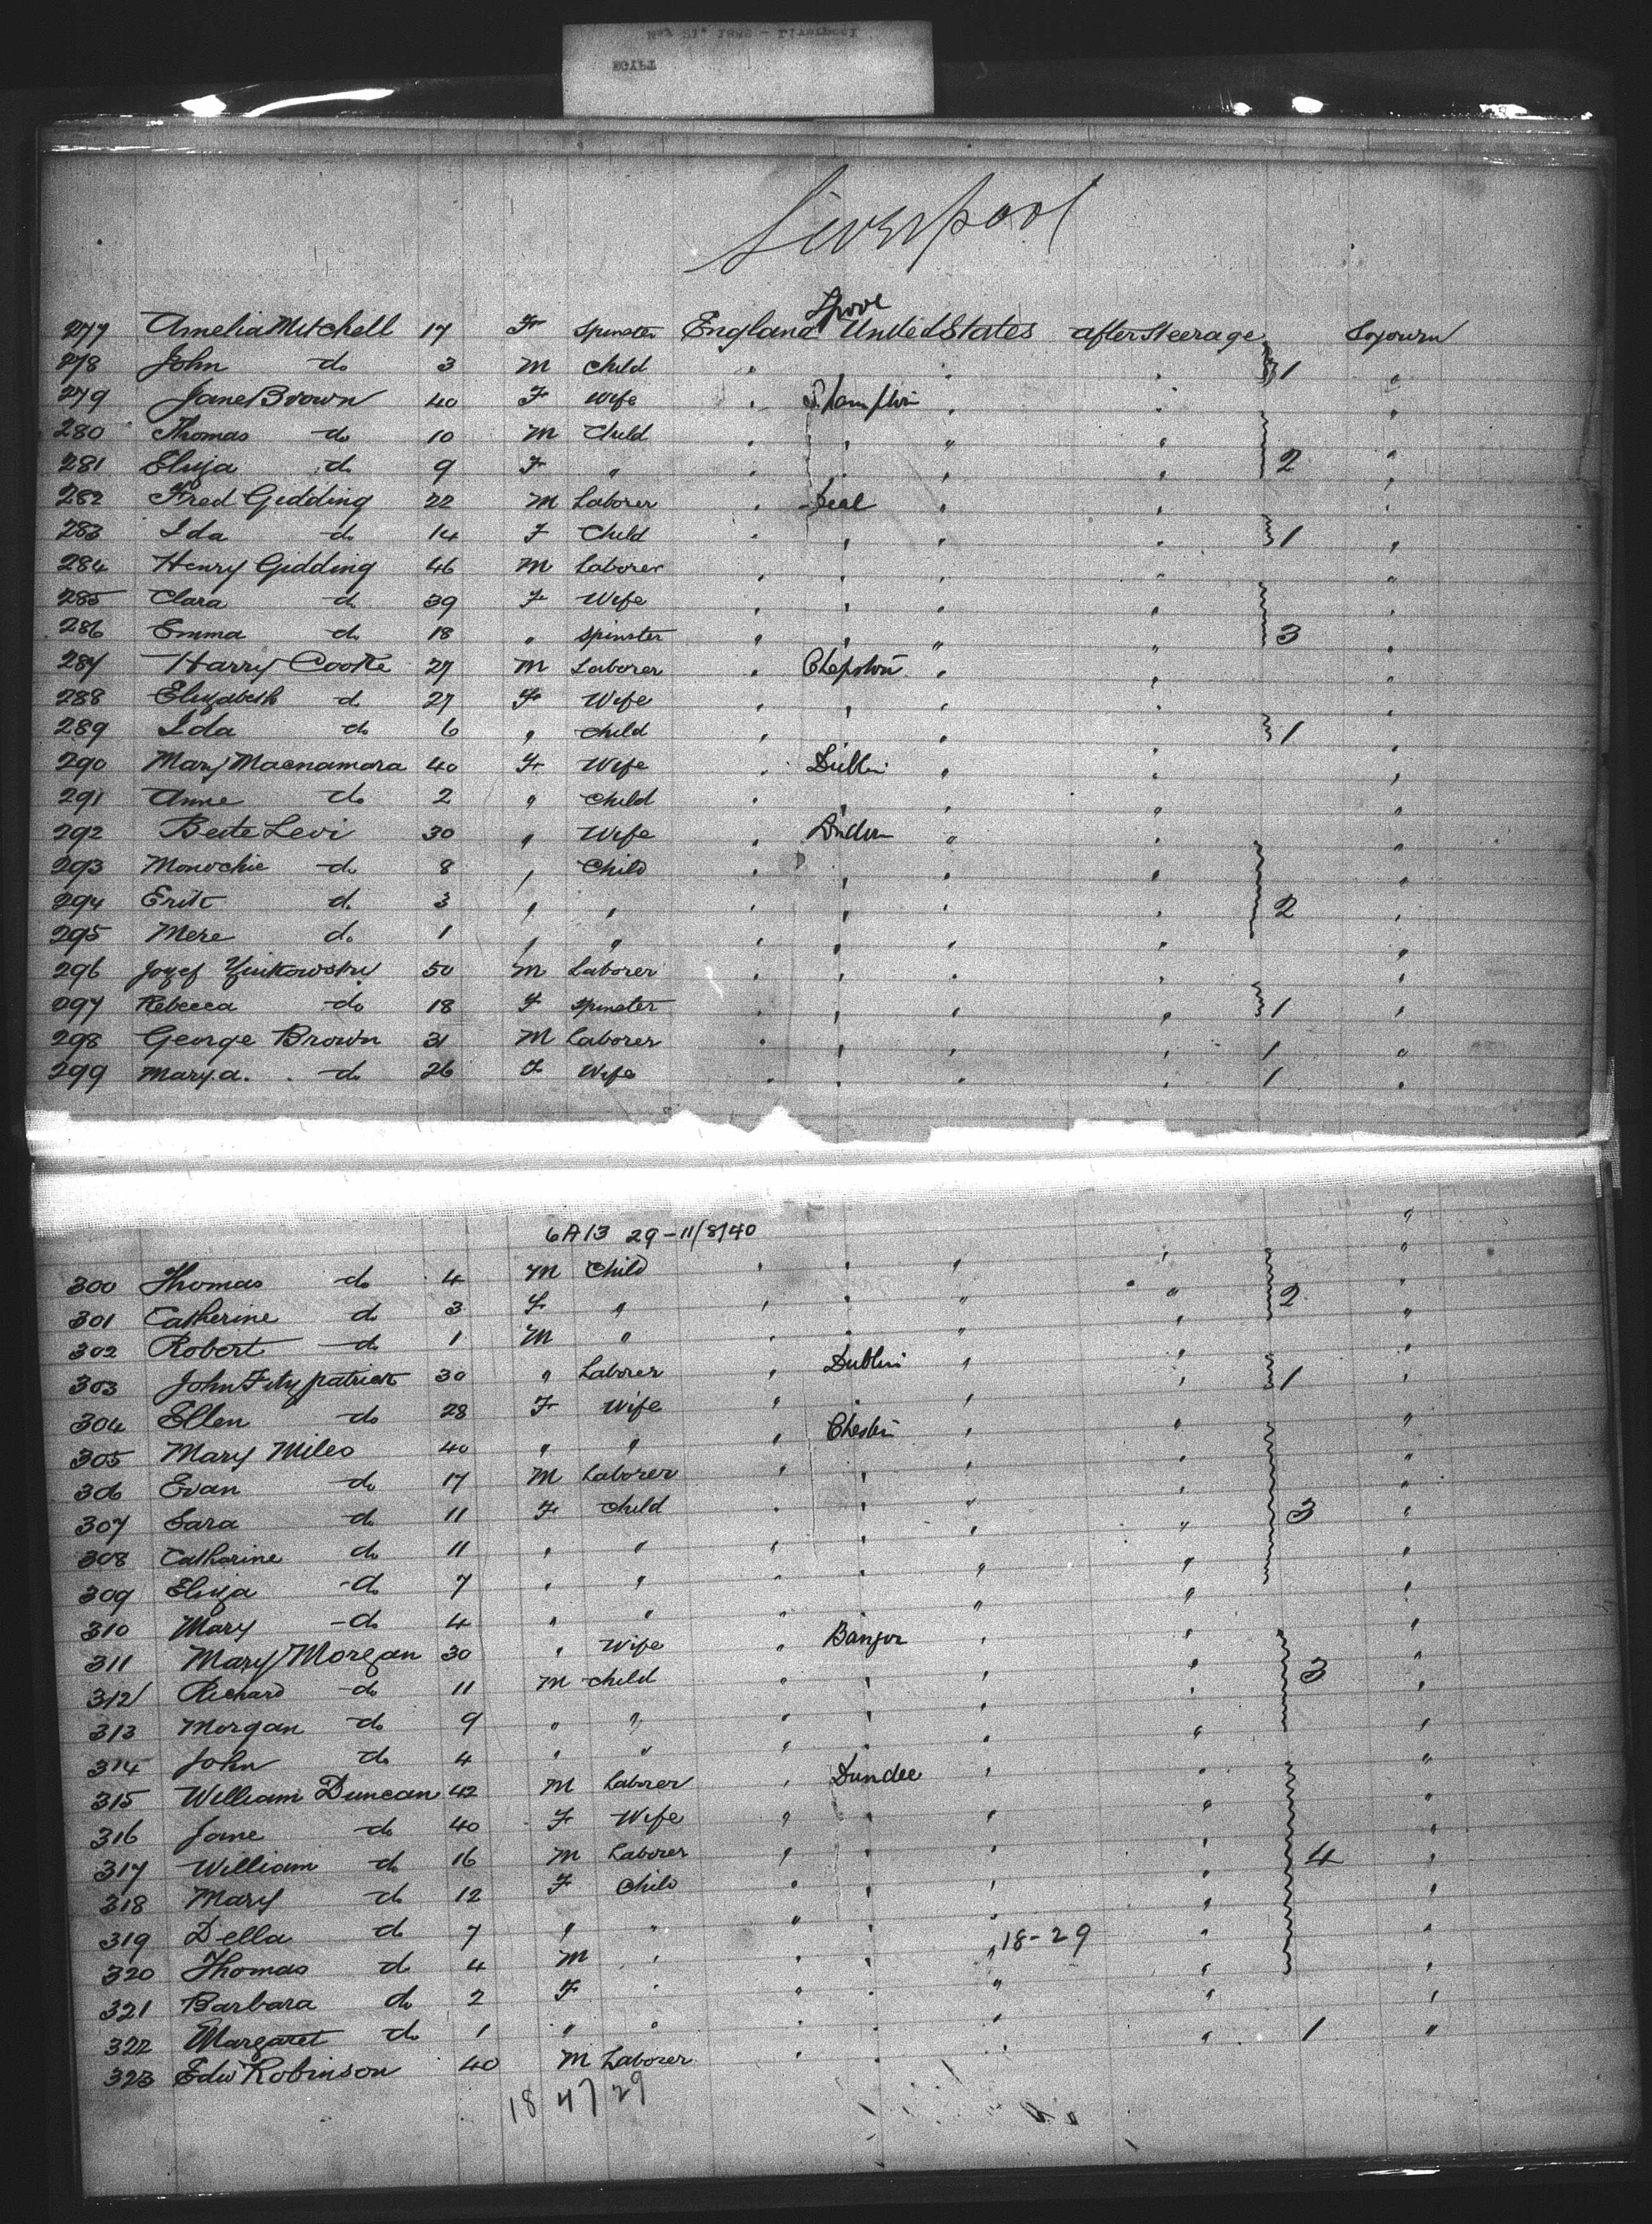 EGYPT
Liverpool
L'pool
277 Amelia Mitchell 17 F Spinster England United States after Steerage Sojourn
278 John do 3 M Child " " " 1 "
279 Jane Brown 40 F Wife " S.hampton " " "
280 Thomas do 10 M Child " " " " "
281 Eliza do 9 F " " " " " 2 "
282 Fred Gidding 22 M Laborer " Deal " " "
283 Ida do 14 F Child " " " " 1 "
284 Henry Gidding 46 M Laborer " " " " "
285 Clara do 39 F Wife " " " " "
286 Emma do 18 " Spinster " " " " 3 "
287 Harry Cooke 27 M Laborer " Chepstow " " "
288 Elizabeth do 27 F Wife " " " " "
289 Ida do 6 " Child " " " " 1 "
290 Mary Macnamara 40 F Wife " Dublin " " "
291 Anne do 2 " Child " " " " "
292 Beite Levi 30 " Wife " London " " "
293 Monochie do 8 " Child " " " " "
294 Erik do 3 " " " " " " 2 "
295 Mere do 1 " " " " " " "
296 Jozef 50 M Laborer " " " " "
297 Rebecca do 18 F Spinster " " " " 1 "
298 George Brown 31 M Laborer " " " " 1 "
299 Mary A. do 26 F Wife " " " " 1 "
6A13 29-11/8/40
300 Thomas do 4 M Child " " " " "
301 Catherine do 3 F " " " " " 2 "
302 Robert do 1 M " " " " " "
303 John Fitzpatrick 30 " Laborer " Dublin " " 1 "
304 Ellen do 28 F Wife " " " " "
305 Mary Miles 40 " " " Chester " " "
306 Evan do 17 M Laborer " " " " "
307 Sara do 11 F Child " " " " 3 "
308 Catharine do 11 " " " " " " "
309 Eliza do 7 " " " " " " "
310 Mary do 4 " " " " " " "
311 Mary Morgan 30 " Wife " Bangor " " "
312 Richard do 11 M Child " " " " 3 "
313 Morgan do 9 " " " " " " "
314 John do 4 " " " " " " "
315 William Duncan 42 M Laborer " Dundee " " "
316 Jane do 40 F Wife " " " " "
317 William do 16 M Laborer " " " " 4 "
318 Mary do 12 F Child " " " " "
319 Della do 7 " " " " " 18-29 " "
320 Thomas do 4 M " " " " " "
321 Barbara do 2 F " " " " " "
322 Margaret do 1 " " " " " " 1 "
323 Edw Robinson 40 M Laborer " " "
18 4729